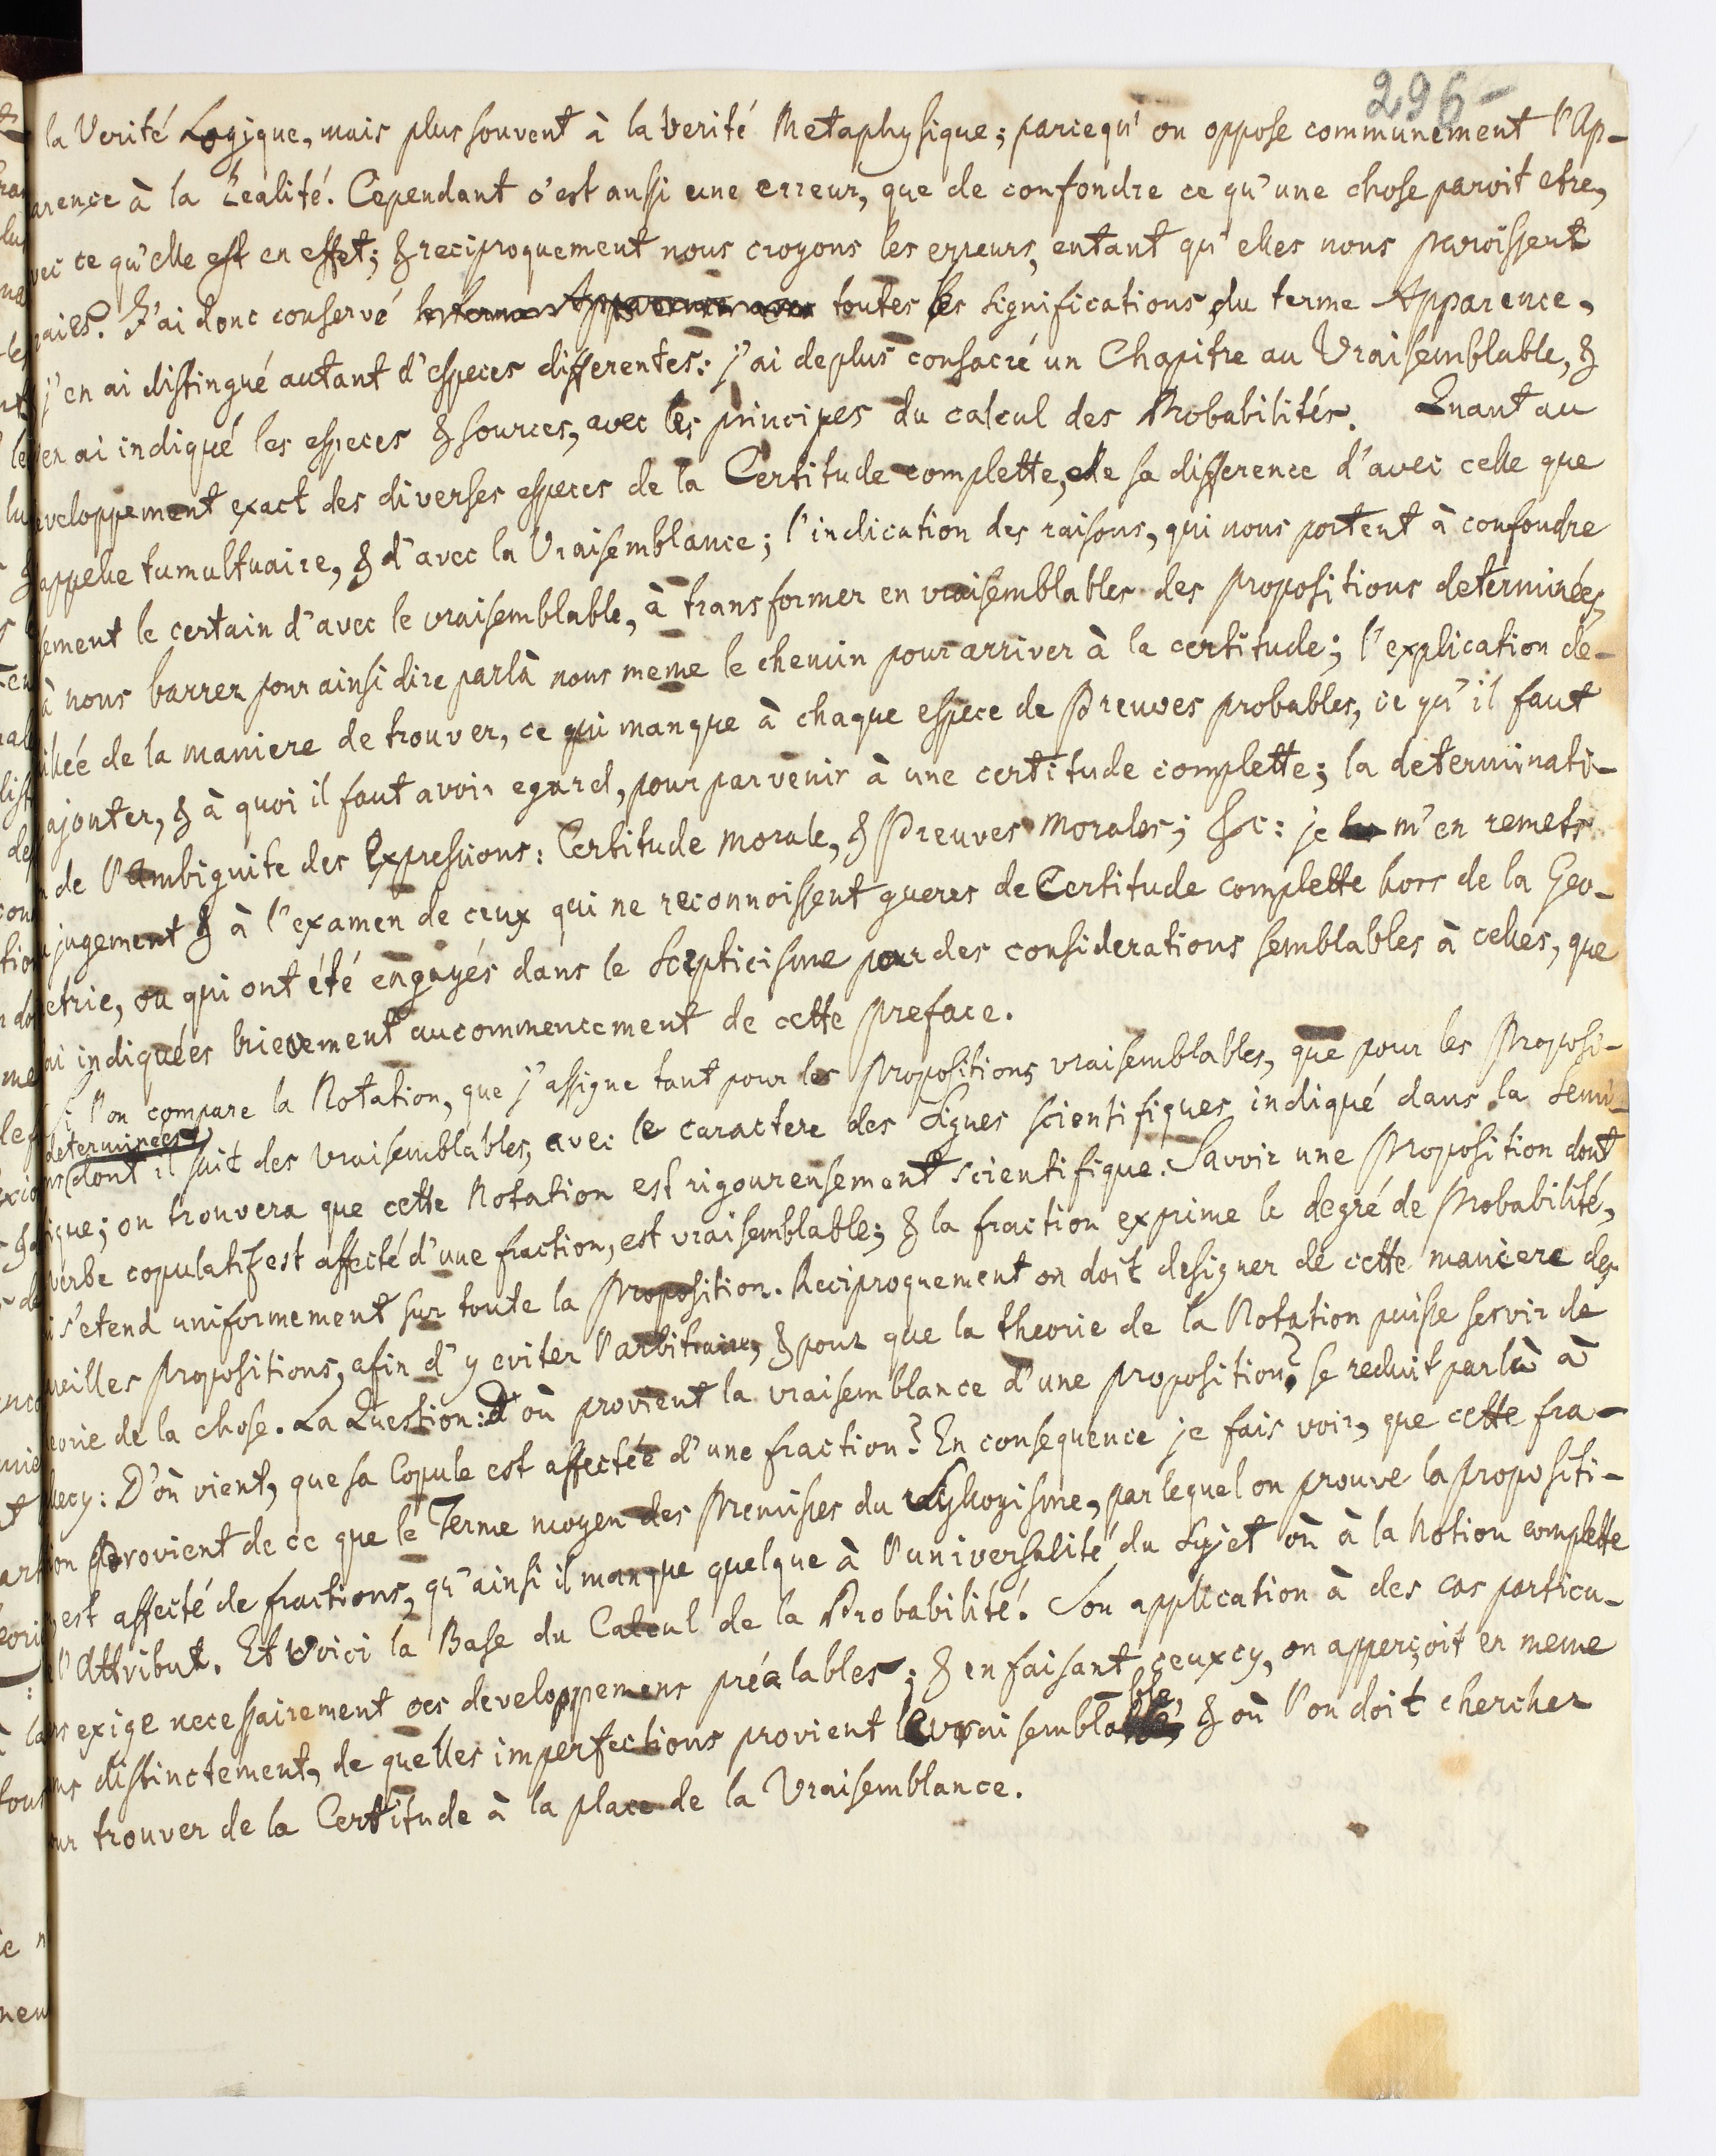 296
la Verité Logique, mais plus souvent à la verité Metaphysique; parcequ'on oppose communement l'Ap-
arence à la Realité. Cependant c'est aussi une erreur, que de confondre ce qu'une chose paroit etre,
vec ce qu'elle est en effet; & reciproquement nous croyons les erreurs, entant qu'elles nous paroissent
raies. J'ai donc conservé le terme Apparence avec toutes les significations du terme Apparence,
j'en ai distingué autant d'especes differentes: j'ai deplus consacré un Chapitre au Vraisemblable, &
en ai indiqué les especes & sources, avec les principes du calcul des Probabilités. Quant au
eveloppement exact des diverses especes de la Certitude complette, de sa difference d'avec celle que
appelle tumultuaire, & d'avec la Vraisemblance; l'indication des raisons, qui nous portent à confondre
sement le certain d'avec le vraisemblable, à transformer en vraisemblables des propositions determinées,
à nous barrer pour ainsi dire parlà nous meme le chemin pour arriver à la certitude; l'explication de-
illée de la maniere de trouver, ce qui manque à chaque espece de Preuves probables, ce qu'il faut
ajouter, & à quoi il faut avoir egard, pour parvenir à une certitude complette; la determinati-
n de l'Ambiguite des Expressions: Certitude morale, & Preuves morales; &c: je m'en remets
u jugement & à l'examen de ceux qui ne reconnoissent gueres de Certitude complette hors de la Geo-
etrie, ou qui ont été engagés dans le Scepticisme par des considerations semblables à celles, que
ai indiquées brievement aucommencement de cette preface.
Si l'on compare la Notation, que j'assigne tant pour les Propositions vraisemblables, que pour les Proposi-
determinées
ns dont il suit des vraisemblables, avec le caractere des Signes scientifiques indiqué dans la Semi-
ique; on trouvera que cette Notation est rigoureusement scientifique: Savoir une Proposition dont
verbe copulatif est affecté d'une fraction, est vraisemblable; & la fraction exprime le degré de Probabilité,
i s'etend uniformement sur toute la Proposition. Reciproquement on doit designer de cette maniere des
reilles Propositions, afin d'y eviter l'arbitraire, & pour que la theorie de la Notation puisse servir de
eorie de la chose. La Question: D'où provient la vraisemblance d'une proposition? se reduit parlà à
llecy: D'où vient, que sa Copule est affectée d'une fraction? En consequence je fais voir, que cette fra-
ion provient de ce que le Terme moyen des Premisses du Syllogisme, par lequel on prouve la propositi-
est affecté de fractions, qu'ainsi il manque quelque à l'universalité du Sujet où à la Notion complette
e l'Attribut. Et voici la Base du Calcul de la Probabilité. Son application à des cas particu-
rs exige necessairement ces developpemens préalables; & en faisant ceuxcy, on apperçoit en meme
ble,
ms distinctement, de quelles imperfections provient le vraisembla & où l'on doit chercher
ur trouver de la Certitude à la place de la Vraisemblance.